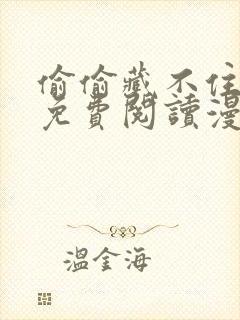 偷偷藏不住
免費閱讀漫
溫金海